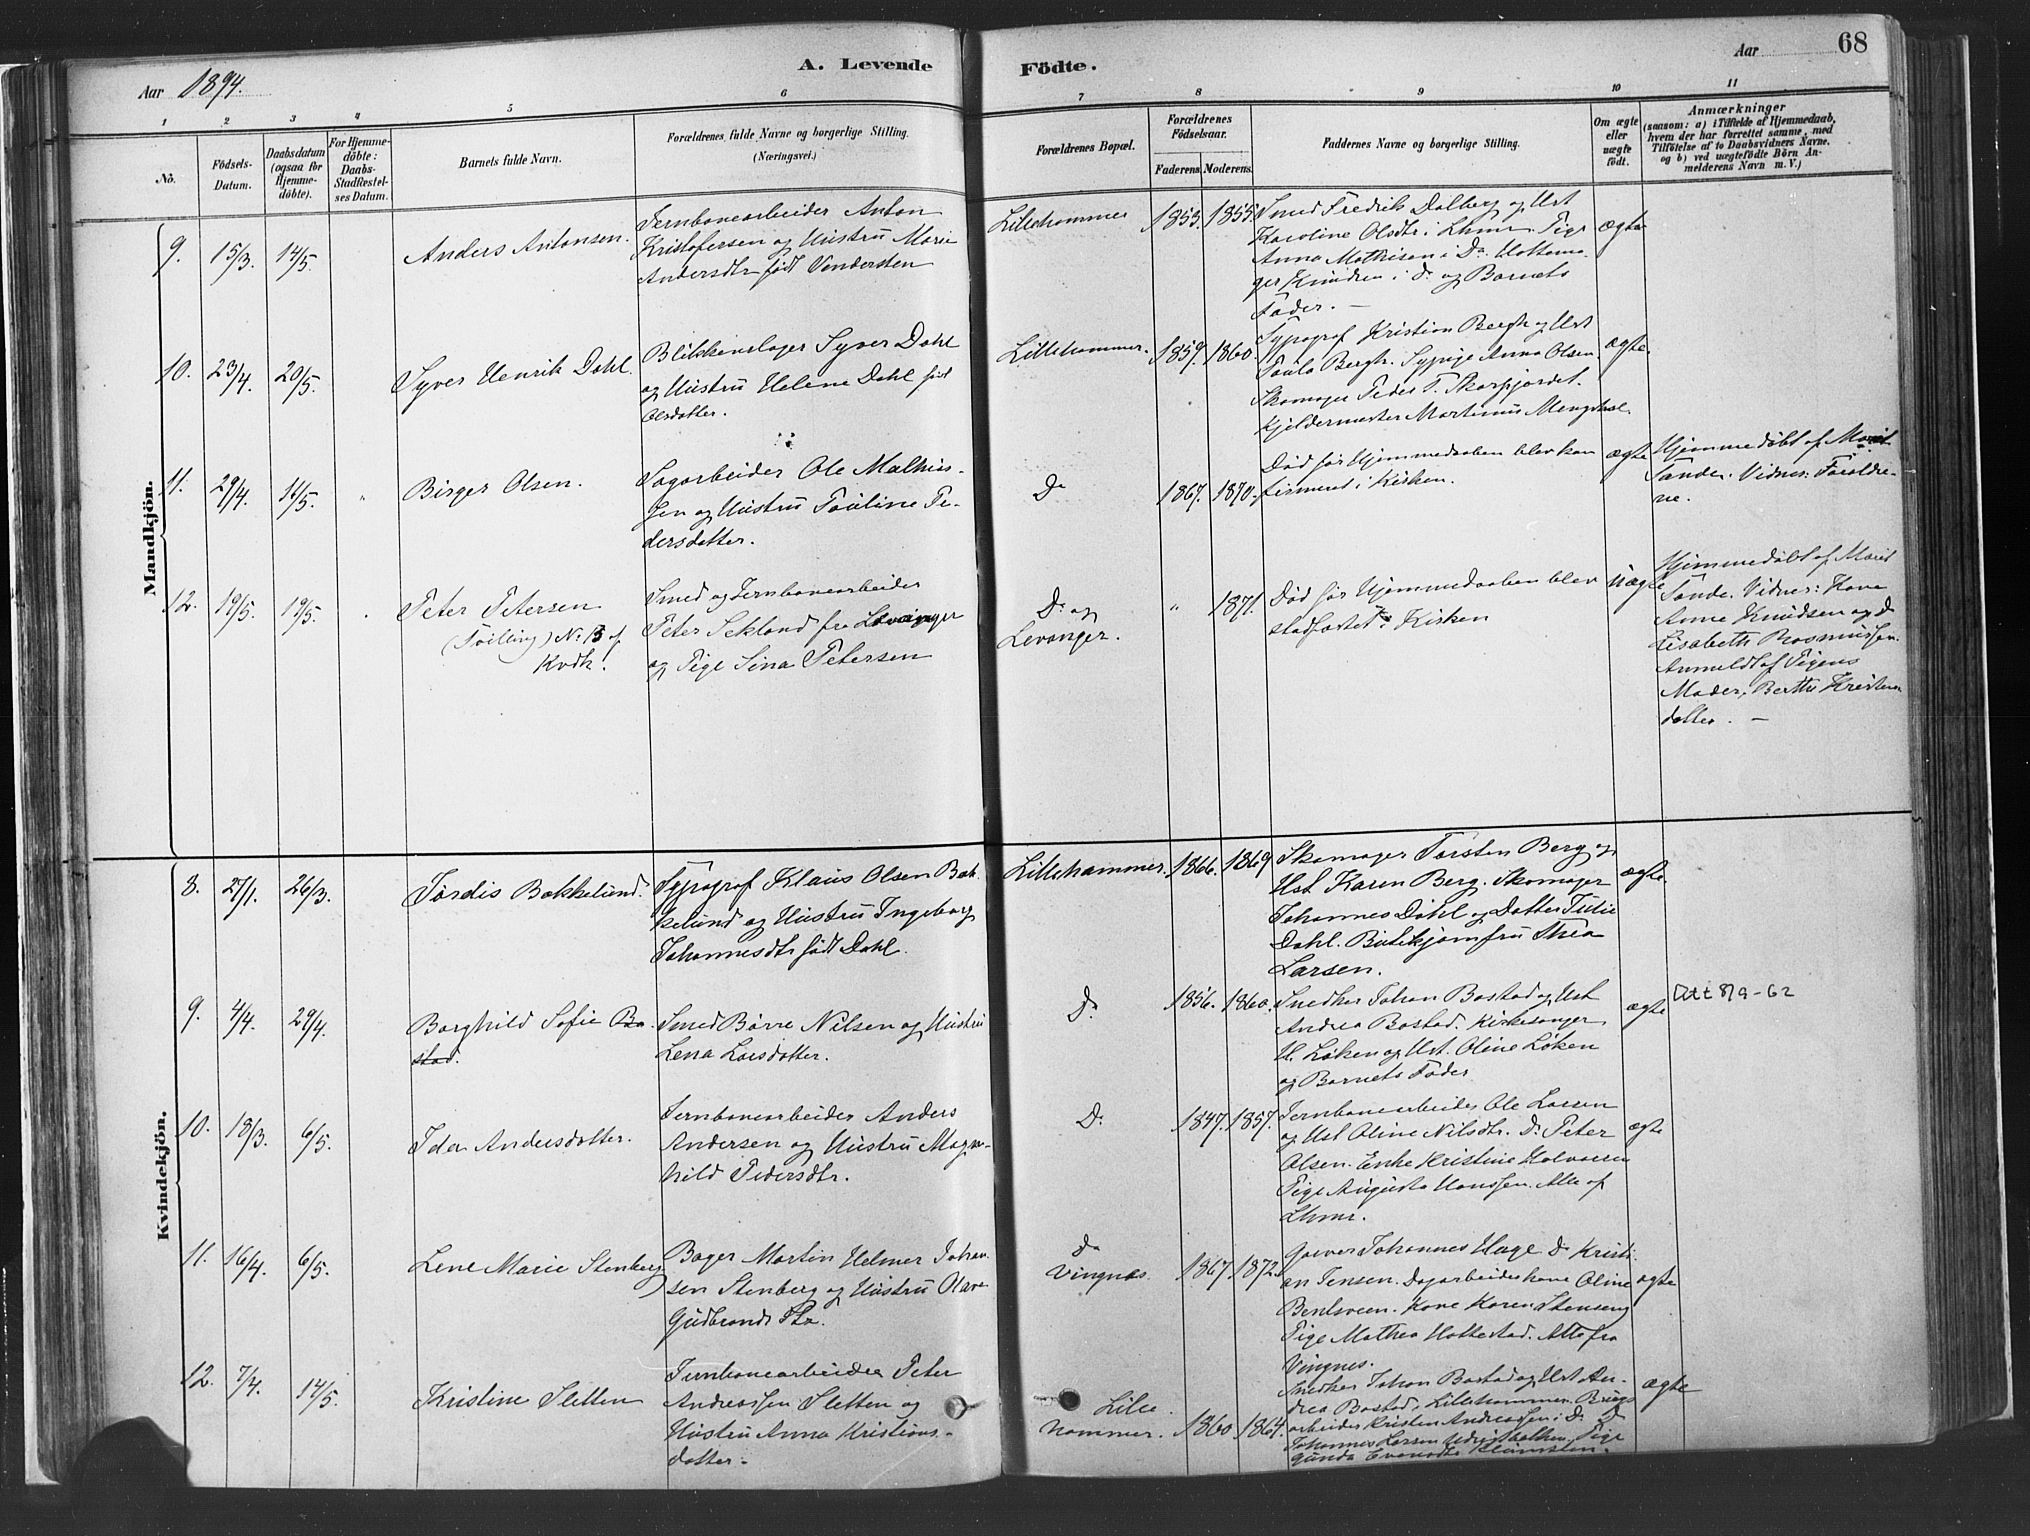 Aar 1894.
A. Levende
Födte.
Aar
68
1
2
3
4
5
6
7
8
9
10
11
No.
Födsels-
Datum.
Daabsdatum
(ogsaa for
Hjemme-
döbte).
For Hjemme-
döbte:
Daabs-
Stadfæstel-
ses Datum.
Barnets fulde Navn.
Forældrenes fulde Navne og borgerlige Stilling.
(Næringsvei.)
Forældrenes Bopæl.
Forældrenes
Födselsaar.
Faderens.
Moderens.
Faddernes Navne og borgerlige Stilling.
Om ægte
eller
uægte
födt.
Anmærkninger
(saasom: a) i Tilfælde af Hjemmedaab,
hvem der har forrettet samme, med
Tilföielse af to Daabsvidners Navne,
og b) ved uægtefödte Börn An-
melderens Navn m. V.)
Mandkjön.
9.
15/3.
14/5.
Anders Antonsen.
Jernbanearbeider Anton
Kristofersen og Hustru Marie
Andersdtr født Vendersten
Lillehammer
1853.
1855.
Smed Fredrik Dalberg og Hst
Karoline Olsdtr. i Lhmr. Pige
Anna Mathisen i Do. Hattema-
ger Knudsen i do og Barnets
Fader. —
ægte
10.
23/4.
20/5.
Syver Henrik Dahl.
Blikkenslager Syver Dahl
og Hustru Helene Dahl født
Olsdatter.
Lillehammer.
1859.
1860.
Typograf Kristian Bergh og Hst
Paula Bergh. Sypige Anna Olsen
Skomager Peder T. Skarpjordet.
Kjeldermester Martinus
ægte.
11.
29/4.
14/5.
"
Birger Olsen.
Sagarbeider Ole Mathis-
sen og Hustru Pauline Pe-
dersdatter.
Do
1867.
1870.
Død før Hjemmedaaben blev kon
firmeret i Kirken.
ægte
Hjemmedøbt af Marit
Sande. Vidner: Forældre-
ne.
12.
19/5.
19/5.
"
Peter Petersen
(Tvilling) No 13 af
Kvdk.
Smed og Jernbanearbeider
Peter Sekland fra Levanger
og Pige Sina Petersen
Do og
Levanger.
"
1871.
Død før Hjemmedaaben blev
stadfæstet i Kirken
uægte
Hjemmedøbt af Marit
Sande. Vidner: Kone
Anne Knudsen og do
Lisabeth Rasmussen.
Anmeldt af Pigens
Moder, Berthe Kristens
datter. —
Kvindekjön.
8.
27/1.
26/3.
Tordis Bakkelund.
Typograf Klaus Olsen Bak-
kelund og Hustru Ingeborg
Johannesdtr født Dahl.
Lillehammer.
1866.
1869
Skomager Torsten Berg og
Hst Karen Berg. Skomager
Johannes Dahl og Datter Julie
Dahl. Butikjomfru Thea
Larsen.
ægte.
9.
4/4.
29/4.
Borghild Sofie Bo-
stad.
Smed Børre Nilsen og Hustru
Lena Larsdatter.
Do
1856.
1860.
Snedker Johan Bostad og Hst
Andrea Bostad. Kirkesanger
H. Løken og Hst. Oline Løken
og Barnets Fader
ægte
Død 8/9-62
10.
18/3.
6/5.
Ida Andersdatter.
Jernbanearbeider Anders
Andersen og Hustru Magn-
hild Pedersdtr.
Do
1847.
1857.
Jernbanearbeider Ole Larsen
og Hst Oline Nilsdtr. Do Peter
Olsen. Enke Kristine Halvorsen
Pige Augusta Hanssen. Alle af
Lhmr.
ægte
11.
16/4.
6/5.
Lene Marie Stenberg
Bager Martin Helmer Johan-
sen Stenberg og Hustru Olave
Gudbrandsdtr.
Do
Vingnæs.
1867.
1872.
Garver Johannes Hage Do Kristi-
an Jensen. Dagarbeiderkone Oline
Bentsveen. Kone Karen Stenseng
Pige Mathea Hattestad. Alle fra
Vingnes.
ægte
12.
7/4.
14/5.
Kristine Sletten
Jernbanearbeider Peter
Andreassen Sletten og
Hustru Anna Kristians-
datter.
Lille
hammer.
1860
1864.
Snedker Johan Bostad og Hst An-
drea Bostad, Lillehammer. Brugs
arbeider Kristen Andreassen i Do Do
Johannes Larsen Pige
Gunda
ægte